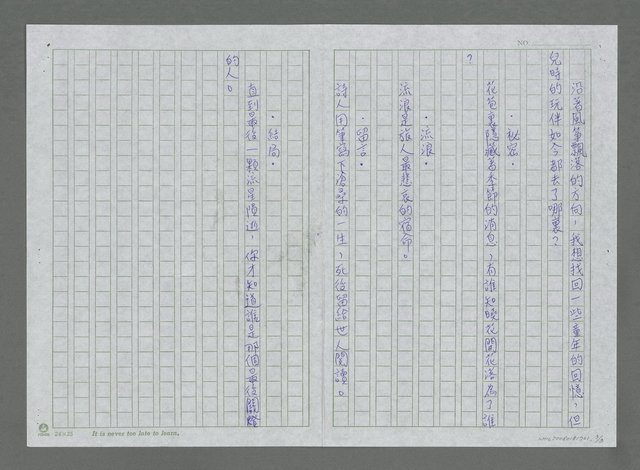 NO.
沿著風箏飄落的方向，我想找回一些童年的回憶，但
兒時的玩伴如今都去了哪裏？
·秘密·
花苞裏隱藏著季節的消息，有誰知曉花開花落為了誰
？
·流浪·
流浪是旅人最悲哀的宿命。
·留言·
詩人用筆寫下滄桑的一生，死後留給世人閱讀。
·結局·
直到最後一顆流星隕逝，你才知道誰是那個最後關燈
的人。
24×25
It is never too late to learn.